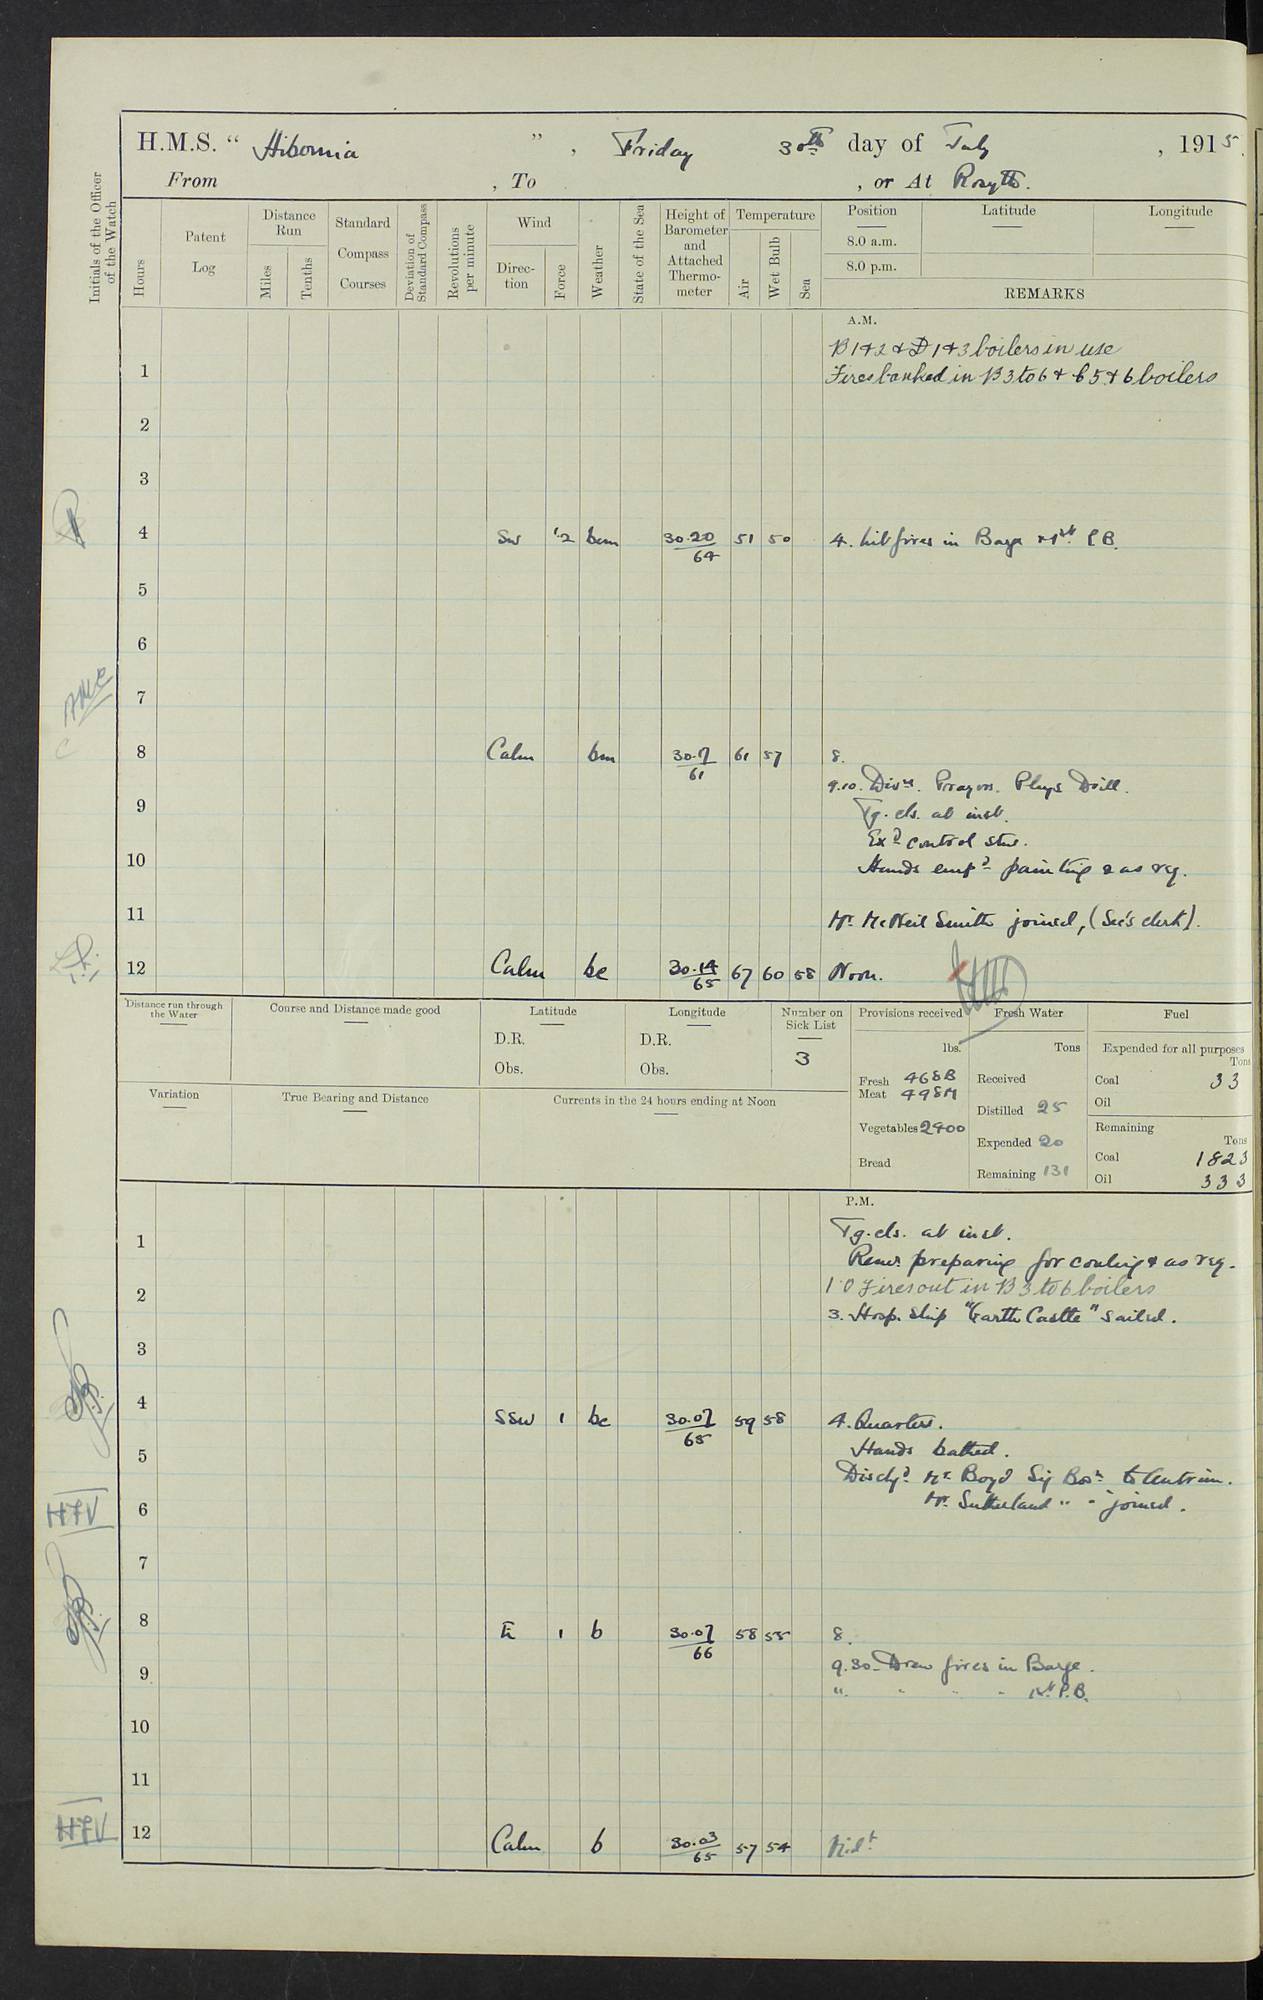 H.M.S. “ Hibernia ” , Friday 30th day of July , 1915.
From , To , or At Rosyth.
Initials of the Officer of the Watch
Hours
Patent Log
Distance Run
Miles
Tenths
Standard Compass Courses
Deviation of Standard Compass
Revolutions per minute
Wind
Direction
Force
Weather
State of the Sea
Height of Barometer and Attached Thermometer
Temperature
Air
Wet Bulb
Sea
Position Latitude Longitude
8.0 a.m.
8.0 p.m.
REMARKS
A.M.
B 1+2 & D 1+3 boilers in use
1 Fires banked in B 3 to 6 + 5 + 6 boilers
2
3
4 SW 1.2 bcm 30.20/64 51 50 4. Lit fires in Barge + 1st P.B.
5
6
7
8 Calm bm 30.17/61 61 57 8.
9.10. Divns. Prayers. Phys Drill.
9 Tg. cls. at inst.
Exd control stns.
10 Hands empd painting & as req.
11 Mr. McNeil Smith joined, (Sec's clerk).
12 Calm bc 30.14/65 67 60 58 Noon.
Distance run through the Water
Course and Distance made good
Latitude
D.R.
Obs.
Longitude
D.R.
Obs.
Number on Sick List
3
Provisions received
lbs.
Fresh Meat 468B
498M
Vegetables 2400
Bread
Fresh Water
Tons
Received
Distilled 25
Expended 20
Remaining 131
Fuel
Expended for all purposes
Tons
Coal 33
Oil
Remaining
Tons
Coal 1823
Oil 333
Variation
True Bearing and Distance
Currents in the 24 hours ending at Noon
P.M.
1 Tg. cls. at inst.
Remr. preparing for coaling & as req.
2 1.0 Fires out in B 3 to 6 boilers
3. Hosp. Ship "Garth Castle" sailed.
3
4 SSW 1 bc 30.07/65 59 58 4. Quarters.
5 Hands bathed.
Dischd Mr. Boyd Sig Bosn to Antrim.
6 Mr. Sutherland " " joined.
HFV
7
8 E 1 b 30.07/66 58 55 8.
9 9.30. Drew fires in Barge.
" " " " 1st P.B.
10
11
HFV
12 Calm b 30.03/65 57 54 Midt